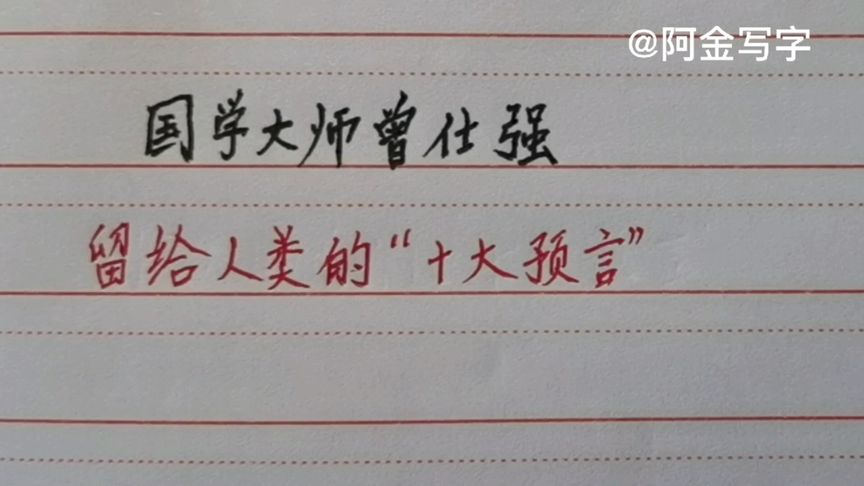 @阿金写字
国学大师曾仕强
留给人类的“十大预言”